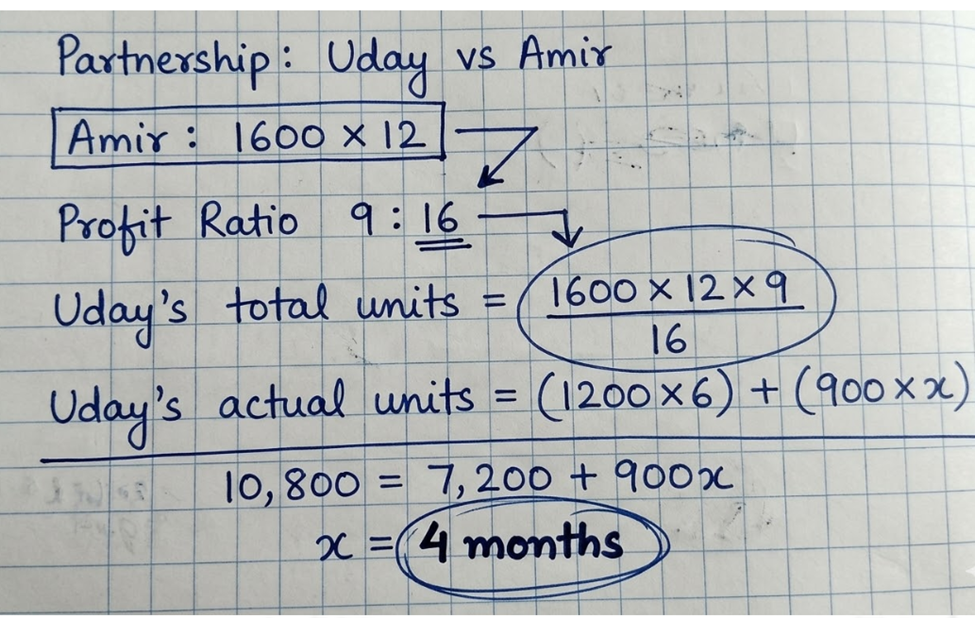 Partnership: Uday vs Amir
Amir: 1600 × 12
Profit Ratio 9 : 16
Uday's total units = 1600 × 12 × 9
16
Uday's actual units = (1200 × 6) + (900 × x)
10,800 = 7,200 + 900x
x = 4 months